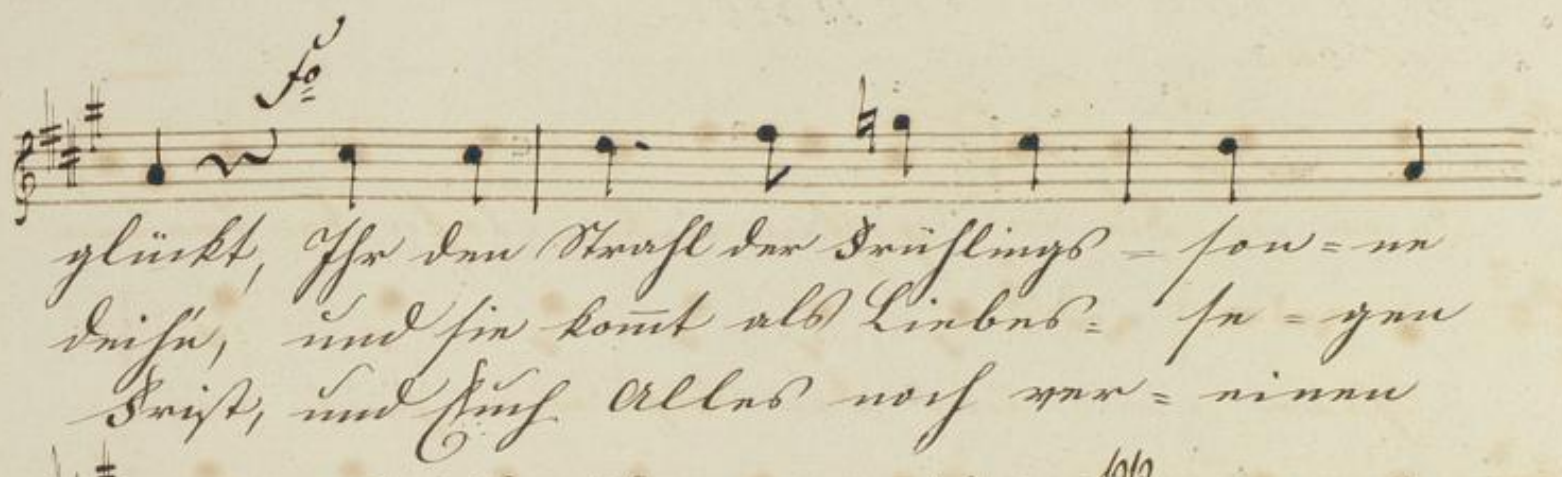 fo
glückt, Ihr den Strahl der Frühlings - son = ne
deih'n, und sie kom̅t als Liebes = se = gen
Frist, und Euch Alles noch ver = einen